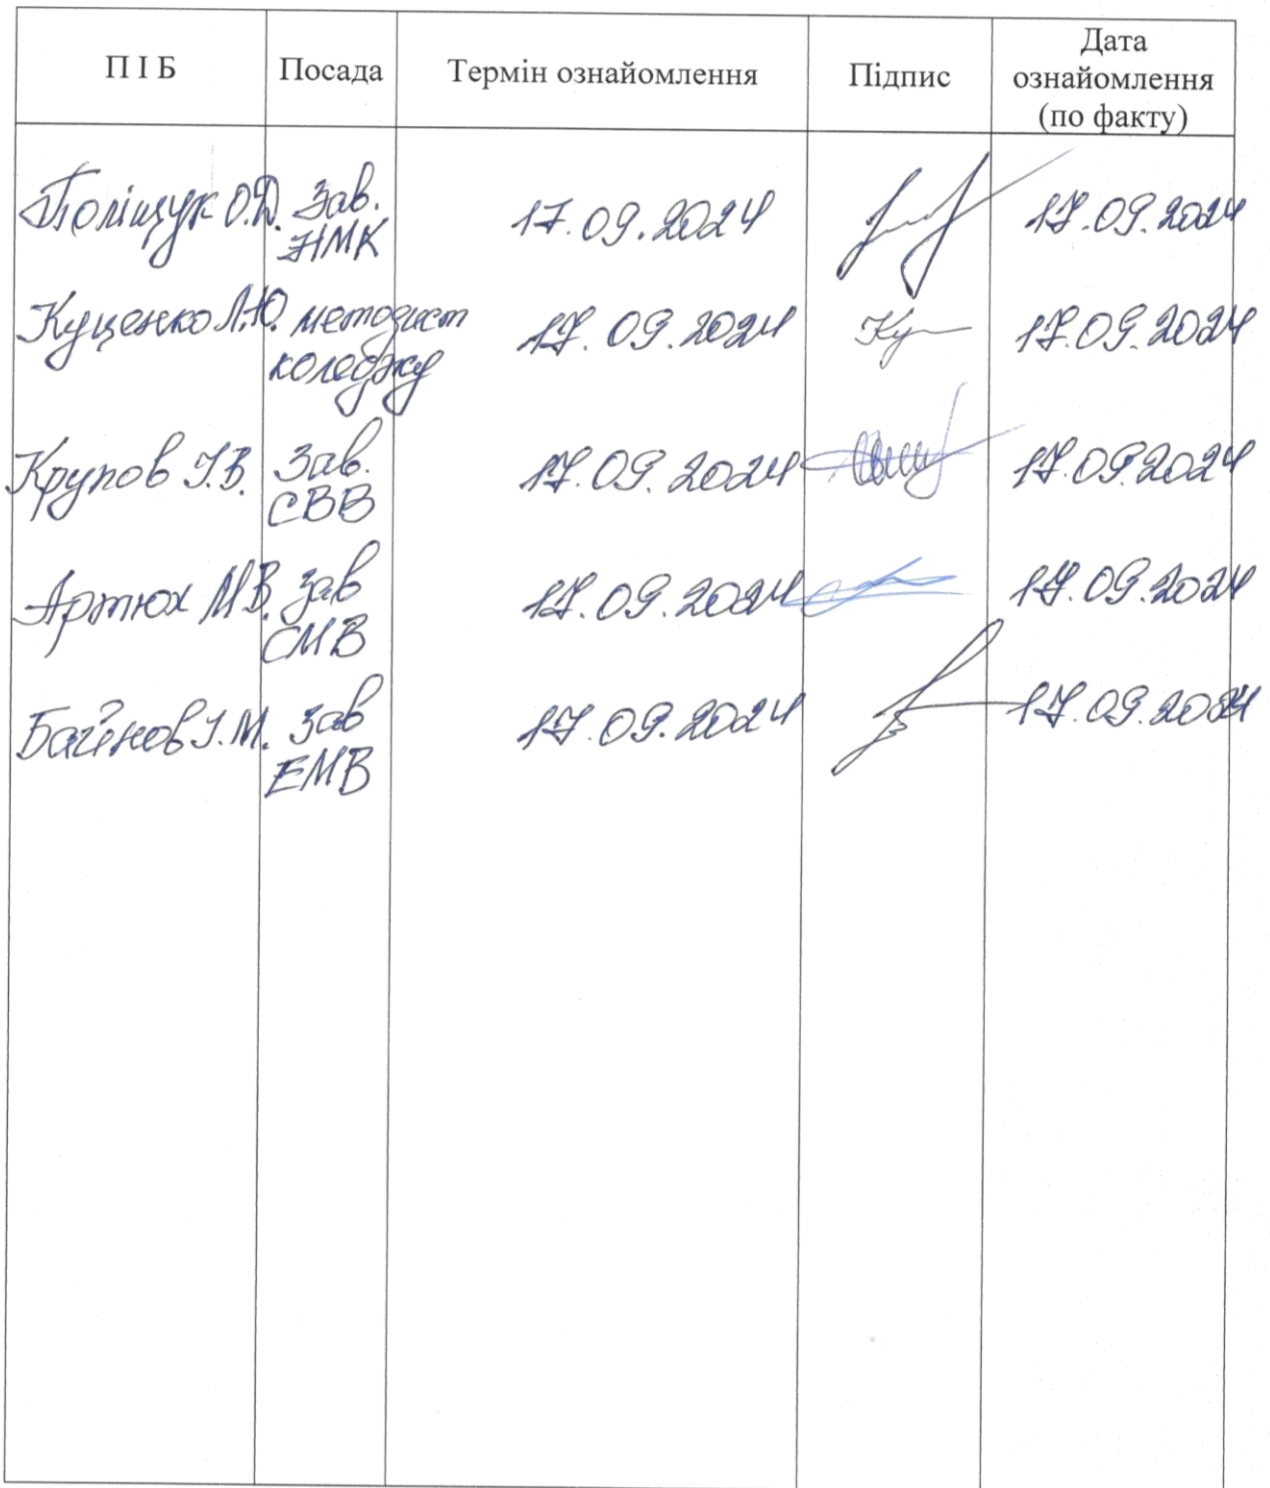 П І Б Посада Термін ознайомлення Підпис Дата ознайомлення (по факту)
Поліщук О.Д. Зав. 17.09.2024 17.09.2024
НМК
Куценко Л.Ю. методист 17.09.2024 Ку 17.09.2024
коледжу
Крупов І.В. Зав. 17.09.2024 17.09.2024
СВВ
Артюх М.В. Зав 17.09.2024 17.09.2024
СМВ
Байнов І.М. Зав 17.09.2024 17.09.2024
ЕМВ